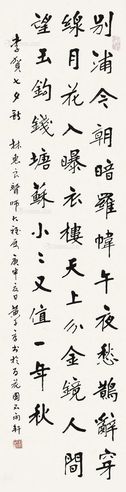 別浦今朝暗羅幃午夜愁鵲辭穿
線月花入曝衣樓天上分金鏡人間
望玉鈎錢塘蘇小〻又值一年秋
李賀七夕詩 庚申 書於百花園